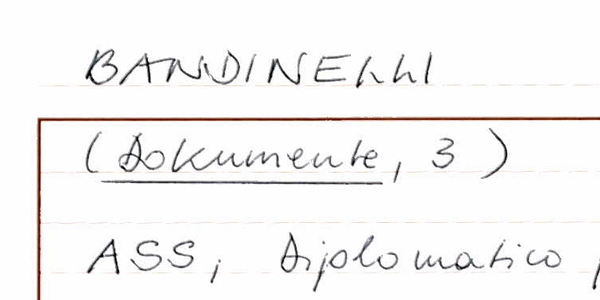 BANDINELLI
(Dokumente, 3)
ASS, Diplomatico